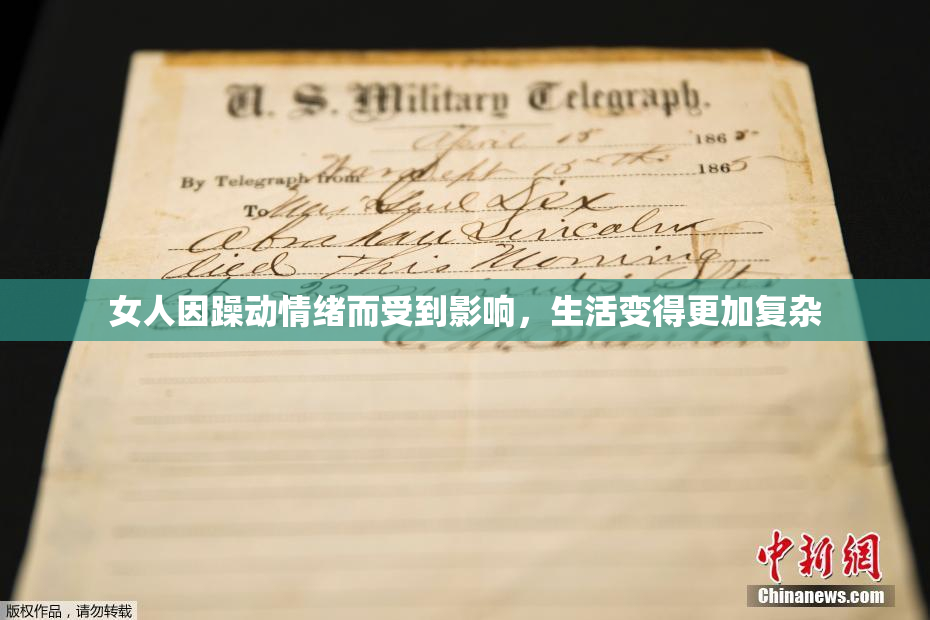 U. S. Military Telegraph.
April 15 1865
By Telegraph from War Dept 15th 1865
To Maj Genl Dix
Abraham Lincoln
died This Morning
22 minutes after
女人因躁动情绪而受到影响，生活变得更加复杂
Stanton
中新網
Chinanews.com
版权作品，请勿转载